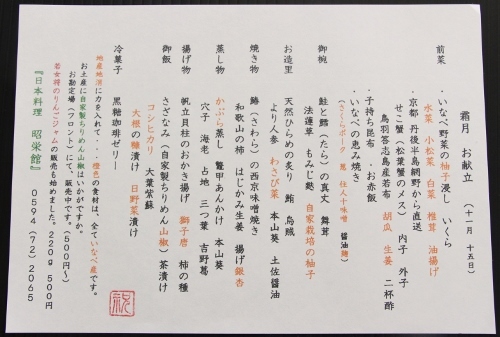 霜月 お献立 (十一月 十五日)
前菜
・いなべ野菜の柚子浸し いくら
水菜 小松菜 白菜 椎茸 油揚げ
・京都 丹後半島網野から直送
せこ蟹(松葉蟹のメス) 内子 外子
鳥羽答志島産若布 胡瓜 生姜 二杯酢
・子持ち昆布 ・お赤飯
・いなべの恵み焼き
(さくらポーク 葱 仕人十味噌 醤油麹)
御椀 鮭と鱈(たら)の真丈 舞茸
法蓮草 もみじ麩 自家栽培の柚子
お造里 天然ひらめの炙り 鮪 烏賊
より人参 わさび菜 本山葵 土佐醤油
焼き物 鰆(さわら)の西京味噌焼き
和歌山の柿 はじかみ生姜 揚げ銀杏
蒸し物 かぶら蒸し 鼈甲あんかけ 本山葵
穴子 海老 占地 三つ葉 吉野葛
揚げ物 帆立貝柱のおかき揚げ 獅子唐 柿の種
御飯 さざなみ(自家製ちりめん山椒)茶漬け
コシヒカリ 大葉紫蘇
大根の糠漬け 日野菜漬け
冷菓子 黒糖珈琲ゼリー
地産地消に力を入れて・・橙色の食材は、全ていなべ産です。
お土産に自家製ちりめん山椒はいかがですか。
お勘定場(フロント)にて、販売中です。(500円~)
若女将のりんごジャムの販売も始めました。220g 500円
『日本料理 昭栄館』 0594(72)2065
祝